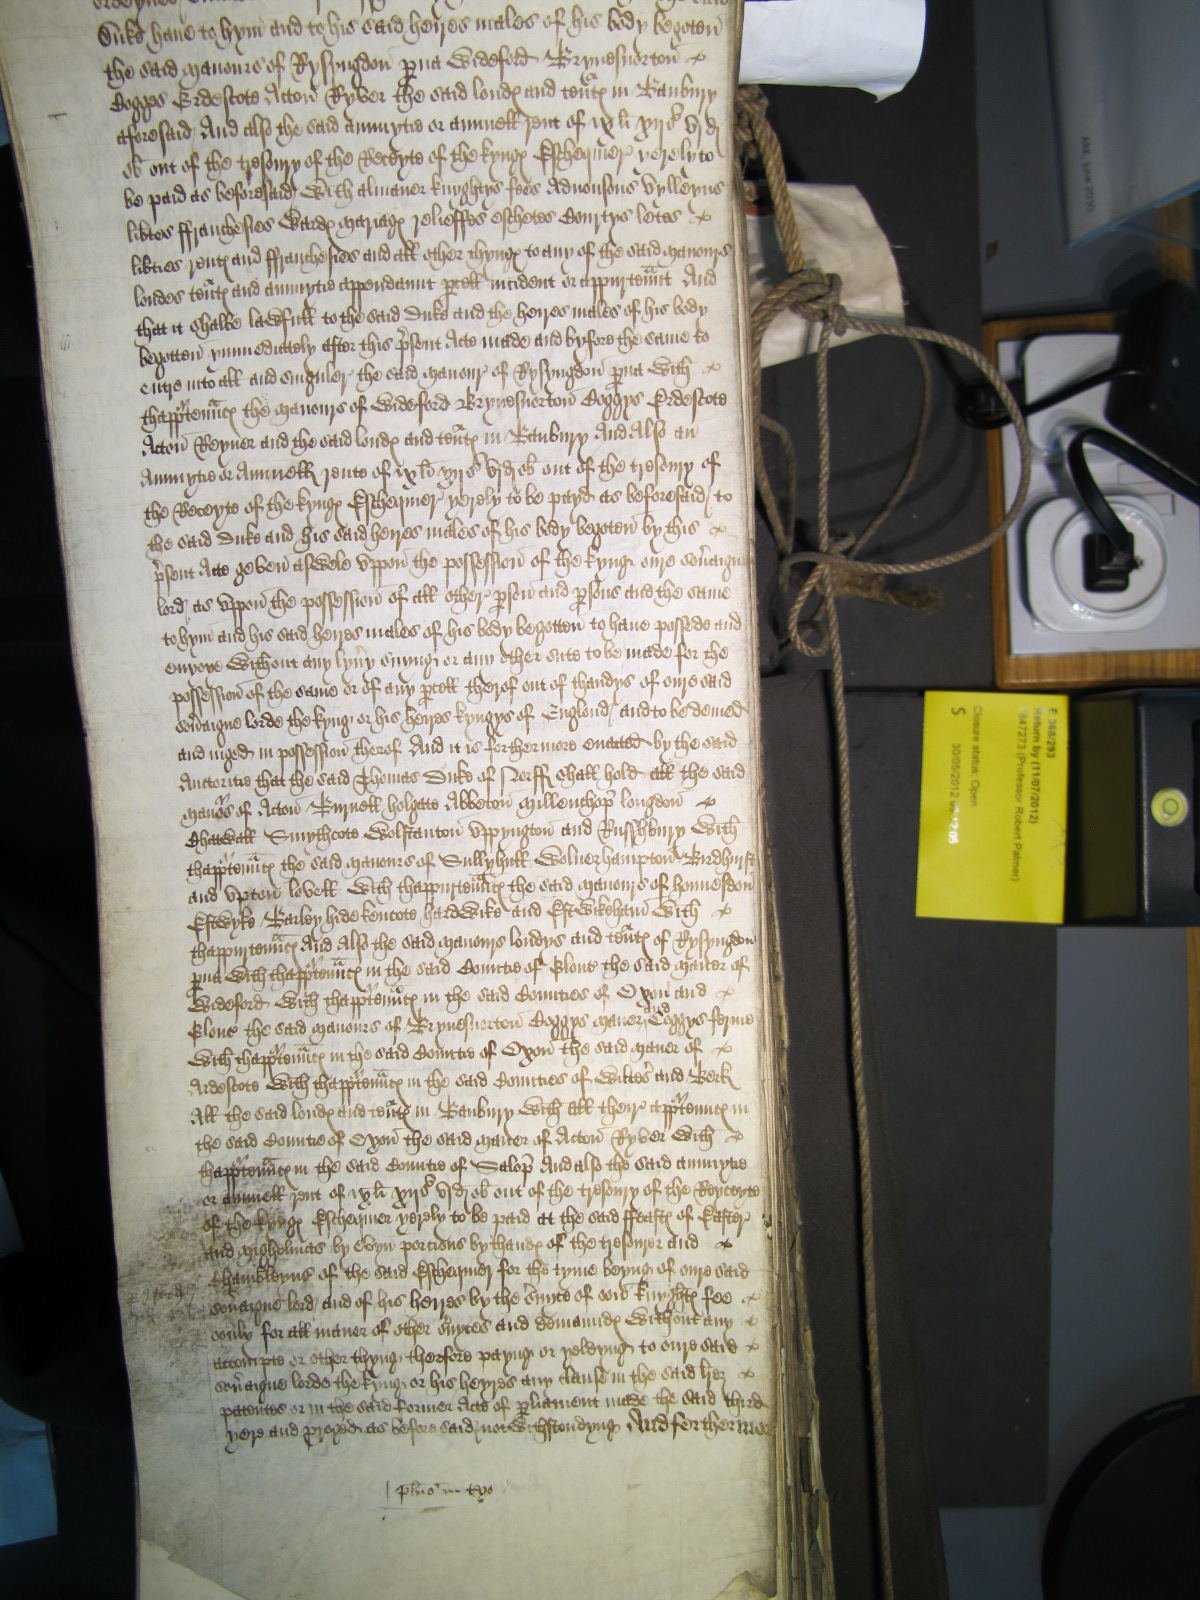 Duke have to hym and to his said heires males of his body begoten
the said Manours of Rysyngdon p̄va Wideford Brynesnorton
Cogges Erdescote Acton Ryver the said londꝭ and teñtꝭ in Banbury
aforesaid And also the said annuytie or annuell rent of ixli xiijs vjd
ob out of the tresoury of the Receyte of the kyngꝭ Eschequier yerely to
be paid as beforesaid With almaner knyghtys fees Advousons Vylleyns
lib̄tes ffraunchesies Wardꝭ mariagꝭ relieffes eschetes Courtys letes
lib̄ties rentꝭ and ffraunchesies and all other thyngꝭ to any of the said Manours
londes teñtꝭ and annuytie appendaunt p̄cell incident or appurteñnt And
that it shalbe lawfull to the said Duke and the heires males of his body
begotten ymmediatly after this p̄sent Acte made and by fore the same to
entre into all and singuler the said Manours of Rysyngdon p̄va With
thapp̄teñncꝭ the Manours of Wideford Brynesnorton Coggys Erdescote
Acton Reyner and the said londꝭ and teñtꝭ in Banbury And Also an
Annuytie or Annuell rente of ixli xiijs vjd ob out of the tresoury of
the Receyte of the kyngꝭ Eschequier yerely to be payd as beforesaid to
the said Duke and his said heires males of his body begoten by this
p̄sent Acte geven aswele uppon the possession of the kyng oure sov̄aigne
lord as uppon the possession of all other p̄son and p̄sons and the same
to hym and his said heires males of his body begotten to have possede and
enyoye Without any lyv̄y suyng or any other sute to be made for the
possession of the same or of any p̄cell therof out of thandys of oure said
sov̄aigne lorde the kyng or his heires kyngys of Englond and to be demed
and juged in possession therof And it is forthermore enacted by the said
Auctoritie that the said Thomas Duke of Norff shall hold all the said
man̄s of Acton Burnell holgate Abbeton Millenchop longdon
Chatwall Smythcote Wolstanton Uppyngton and Russhbury With
thapp̄teñncꝭ the said Manours of Sullyhull Wolverhampton Birdhurst
and Upton lovell With thappurteñncꝭ the said Manours of honnesdon
Estwyke Barley hide kencote hardwike and Estwikeham With
thappurteñncꝭ And Also the said Manours londys and teñtꝭ of Rysyngdon
p̄va With thapp̄teñncꝭ in the said Countie of Glouc the said Maner of
Wideford With thapp̄teñncꝭ in the said Counties of Oxon and
Glouc the said Manours of Brynesnorton Coggys Maner and Coggys ferme
With thapp̄teñncꝭ in the said Countie of Oxon the said Maner of
Ardescote With thapp̄teñncꝭ in the said Counties of Wiltes and Berk
All the said londꝭ and teñtꝭ in Banbury With all their app̄teñncꝭ in
the said Countie of Oxon the said Maner of Acton Ryver With
thapp̄teñncꝭ in the said Countie of Salop And also the said annuytie
or annuell rent of ixli xiijs vjd ob out of the tresoury of the Receyte
of the kyngꝭ Eschequier yerely to be paid at the said ffeastꝭ of Easter
and Mighelmas by evyn porcions by thandꝭ of the tresourer and
Chamb̄leyns of the said Eschequier for the tyme beyng of oure said
sov̄aigne lord and of his heires by the s̄vice of oon knyghtꝭ fee
oonly for all maner of other s̄vices and demaundꝭ Without any
accompte or other thyng therfore payng or yeldyng to oure said
sov̄aigne lorde the kyng or his heyres any clause in the said l̄rez
patentes or in the said former Acte of p̄liament made the said third
yere and as before said notwithstondyng And forthermore
plus in
E 368/293
Return by (11/07/2012)
(Professor Robert Palmer)
Closure status: Open
30/05/2012
S